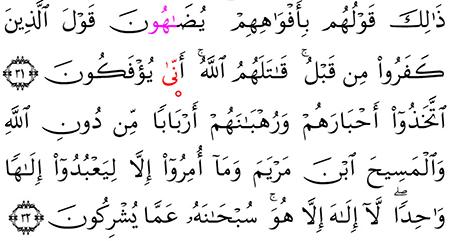 ذَٰلِكَ قَوْلُهُم بِأَفْوَٰهِهِمْ يُضَٰهُونَ قَوْلَ ٱلَّذِينَ
كَفَرُوا۟ مِن قَبْلُ ۚ قَٰتَلَهُمُ ٱللَّهُ ۚ أَنّىٰ يُؤْفَكُونَ ﴿٣١﴾
ٱتَّخَذُوٓا۟ أَحْبَارَهُمْ وَرُهْبَٰنَهُمْ أَرْبَابًا مِّن دُونِ ٱللَّهِ
وَٱلْمَسِيحَ ٱبْنَ مَرْيَمَ وَمَآ أُمِرُوٓا۟ إِلَّا لِيَعْبُدُوٓا۟ إِلَٰهًا
وَٰحِدًا ۖ لَّآ إِلَٰهَ إِلَّا هُوَ ۚ سُبْحَٰنَهُۥ عَمَّا يُشْرِكُونَ ﴿٣٢﴾